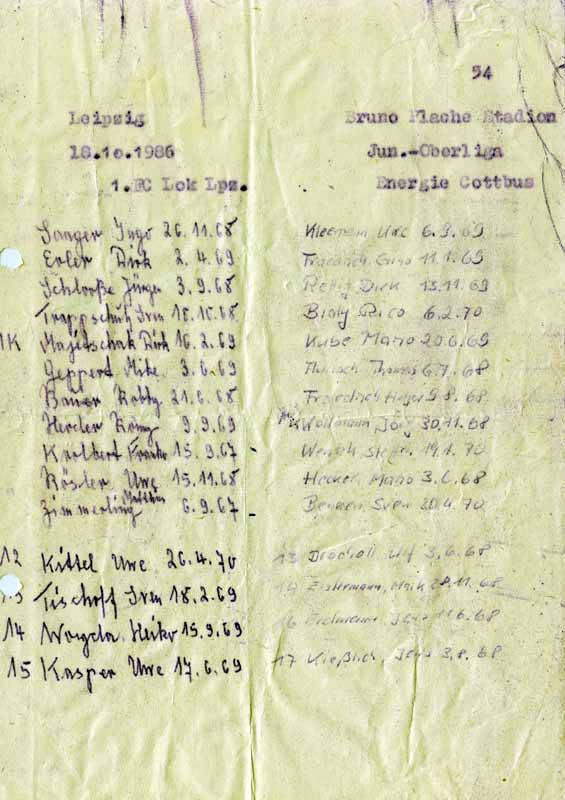 54
Leipzig Bruno Plache Stadion
18.10.1986 Jun.-Oberliga
1.FC Lok Lpz. Energie Cottbus
Sanger Ingo 26.11.68
Erler Dirk 2.4.69
Schloße Jürgen 3.9.68
Trappschuh Sven 18.10.68
1K Majetschak Dirk 16.2.69
Geppert Mike 3.6.69
Bauer 21.6.68
Herder 9.9.69
15.9.67
Rösler Uwe 15.11.68
Zimmerling Matthias 6.9.67
12 Kittel Uwe 26.4.70
13 Tischoff Sven 18.2.69
14 Heiko 15.9.69
15 Kasper Uwe 17.6.69
Kleemann Uwe 6.9.69
11.1.69
Rettig Dirk 13.11.69
Bialy Rico 6.2.70
Kube Mario 20.6.69
Thomas 6.7.68
Holger 9.8.68
Wollmann Jörg 30.11.68
Wensch Steffen 19.1.70
Hecker Mario 3.6.68
Benken Sven 20.4.70
13 Ulf 3.6.68
Maik 28.11.68
16 Erdmann Jens
17 Kießlich, Jens 3.8.68